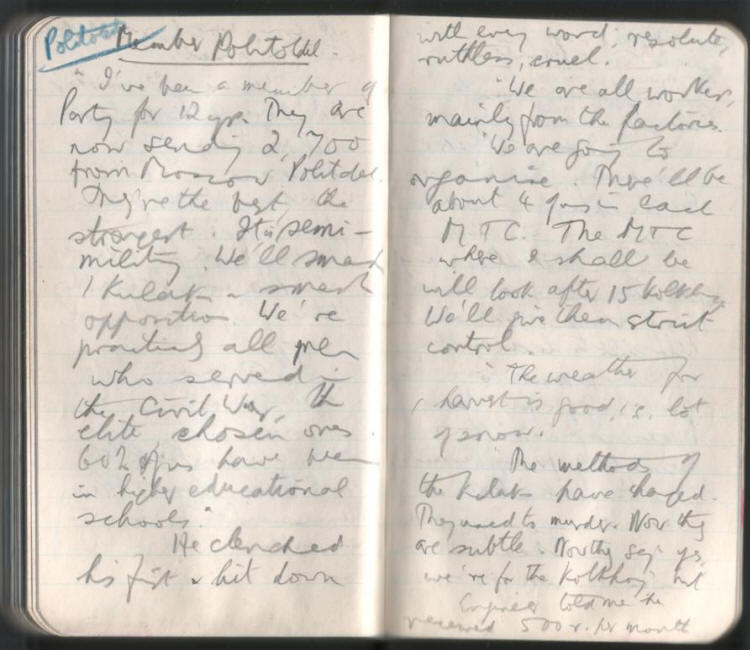 Politotdel
Member Politotdel.
"I've been a member of
Party for 12 yrs. They are
now sending 2,700
from Moscow Politdel.
They're the best, the
strongest. It is semi-
military. We'll smash
kulaks & smash
opposition. We're
practically all men
who served in
the Civil War, the
elite chosen ones
60% of us have been
in higher educational
schools."
He clenched
his fist & hit down
with every word; resolute,
ruthless, cruel.
"We are all workers,
mainly from the factories.
"We are going to
organise. There'll be
about 4 of us in each
MTC. The MTC
where I shall be
will look after 15 kolkhoz
We'll give them strict
control.
"The weather for
harvest is good, i.e. lot
of snow.
"The methods of
the kulaks have changed.
They used to murder. Now they
are subtle. Now they say: yes,
we're for the Kolkhoz, but
Engineer told me he
received 500 r. per month